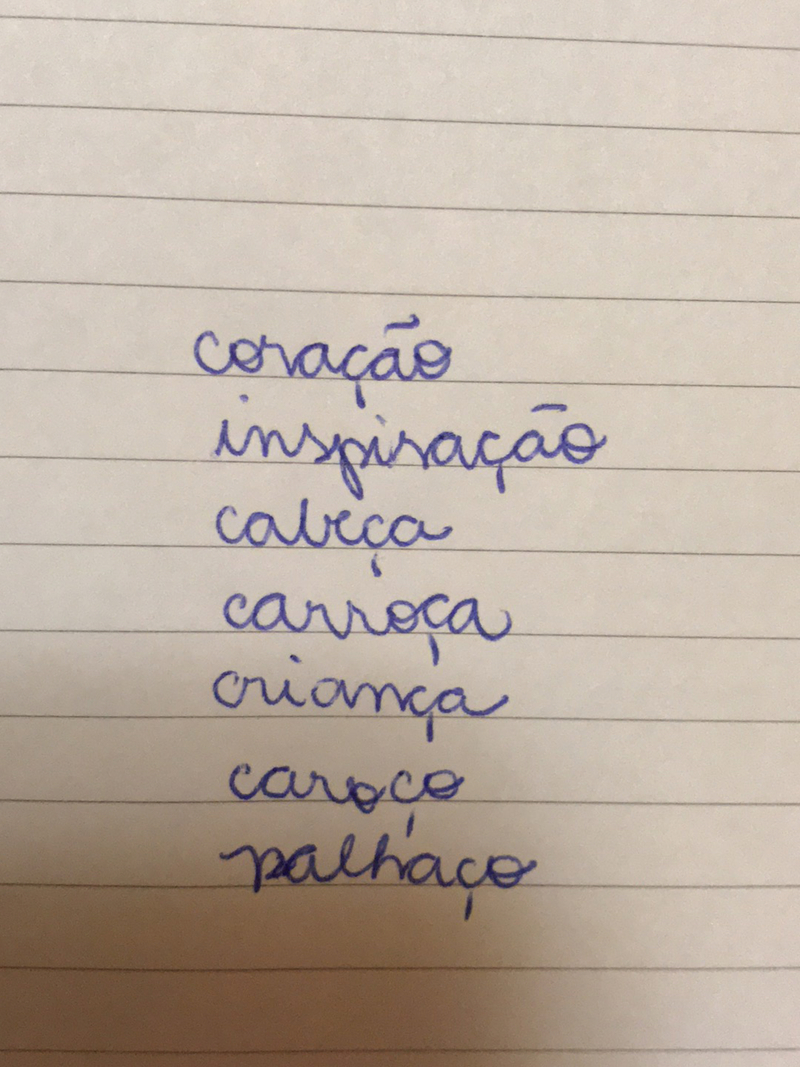 coração
inspiração
cabeça
carroça
criança
caroço
palhaço